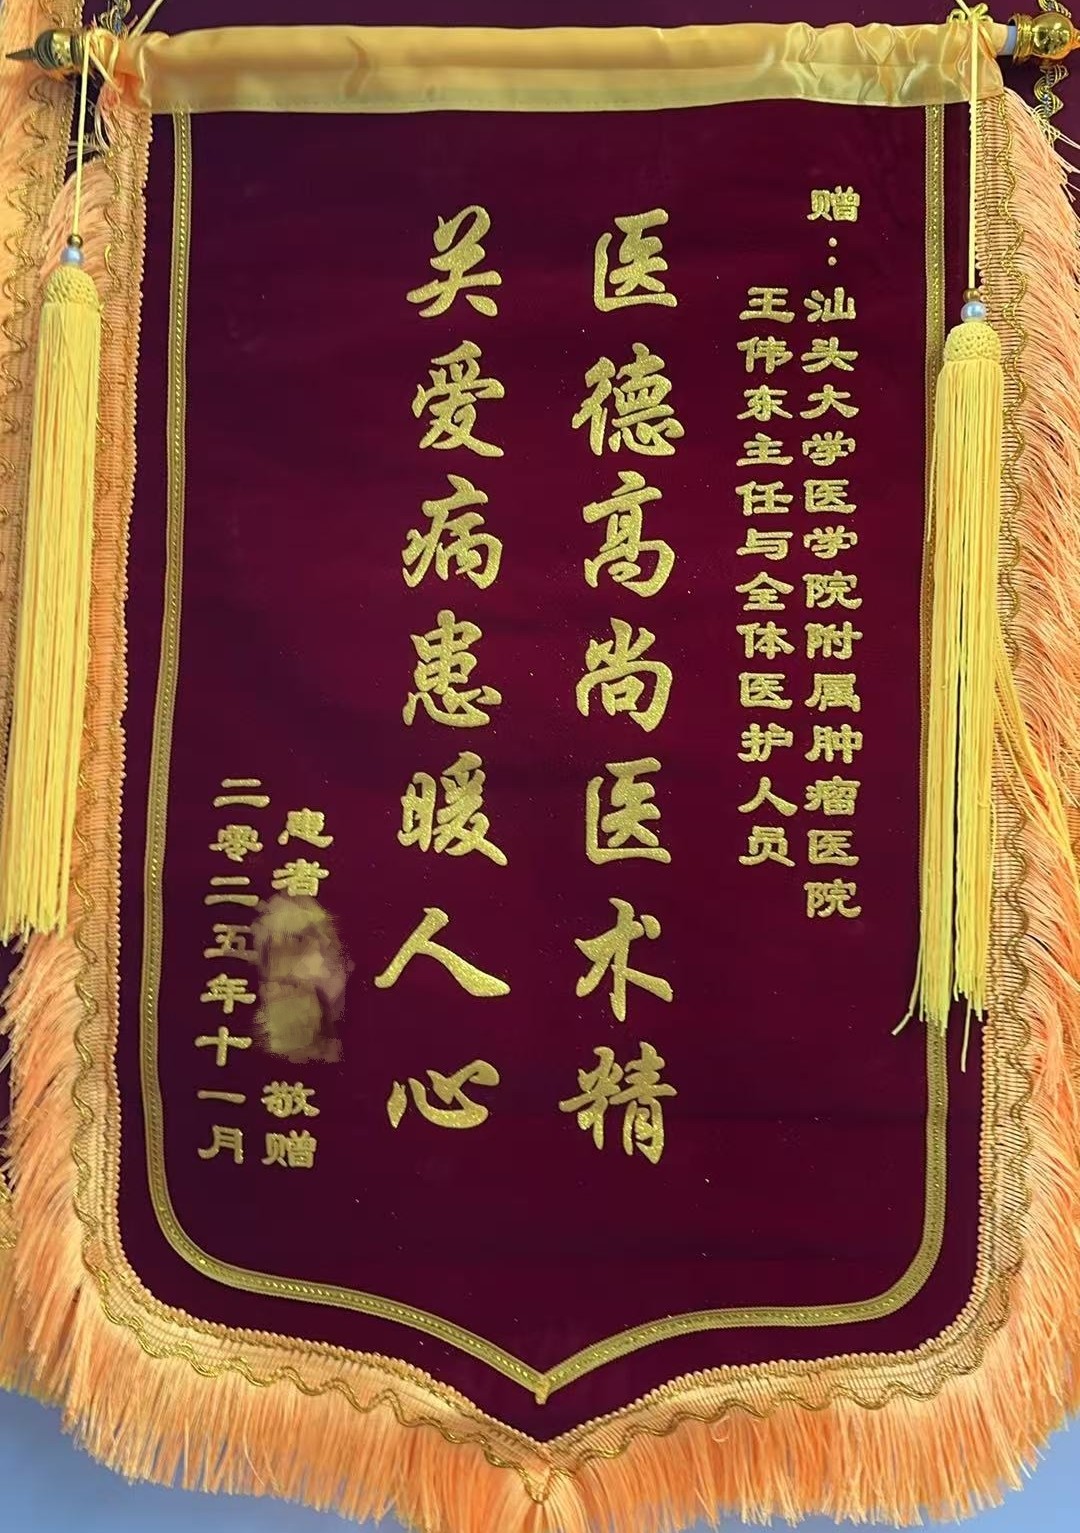 赠：汕头大学医学院附属肿瘤医院
王伟东主任与全体医护人员
医德高尚医术精
关爱病患暖人心
患者 敬赠
二零二五年十一月